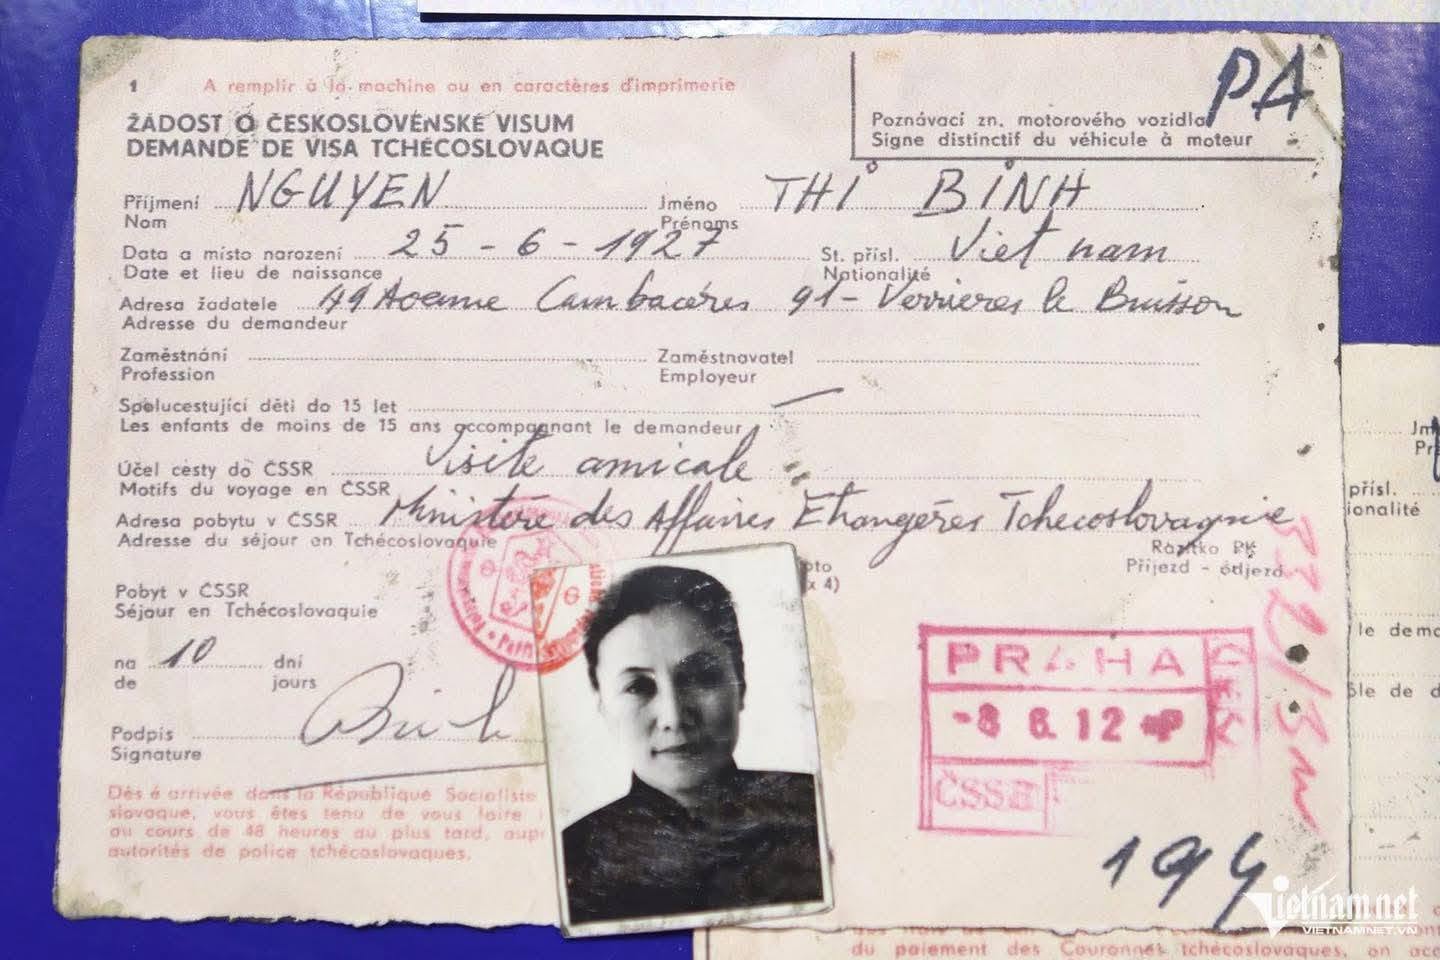 1
A remplir à la machine ou en caractères d'imprimerie
PA
ŽÁDOST O ČESKOSLOVENSKÉ VISUM
DEMANDE DE VISA TCHÉCOSLOVAQUE
Poznávací zn. motorového vozidla
Signe distinctif du véhicule à moteur
Příjmení NGUYEN Jméno THI BINH
Nom Prénoms
Data a místo narození 25 - 6 - 1927 St. přísl. Viet nam
Date et lieu de naissance Nationalité
Adresa žadatele 49 Avenue Cambacérès 91 - Verrieres le Buisson
Adresse du demandeur
Zaměstnání Zaměstnavatel
Profession Employeur
Spolucestující děti do 15 let
Les enfants de moins de 15 ans accompagnant le demandeur
Účel cesty do ČSSR Visite amicale
Motifs du voyage en ČSSR
Adresa pobytu v ČSSR Ministère des Affaires Etrangères Tchecoslovaquie
Adresse du séjour en Tchécoslovaquie
Razítko PK
Příjezd - odjezd
oto
x 4)
Pobyt v ČSSR
Séjour en Tchécoslovaquie
na 10 dní
de jours
PRAHA
-8 6.12
ČSSR
Podpis Binh
Signature
Dès é arrivée dans la République Socialiste
slovaque, vous êtes tenu de vous faire
au cours de 48 heures au plus tard, aupr
autorités de police tchécoslovaques.
194
Jm
Pr
přísl.
ionalité
le dema
ble de d
du paiement des Couronnes tchécoslovaques, on acc
Vietnamnet
VIETNAMNET.VN